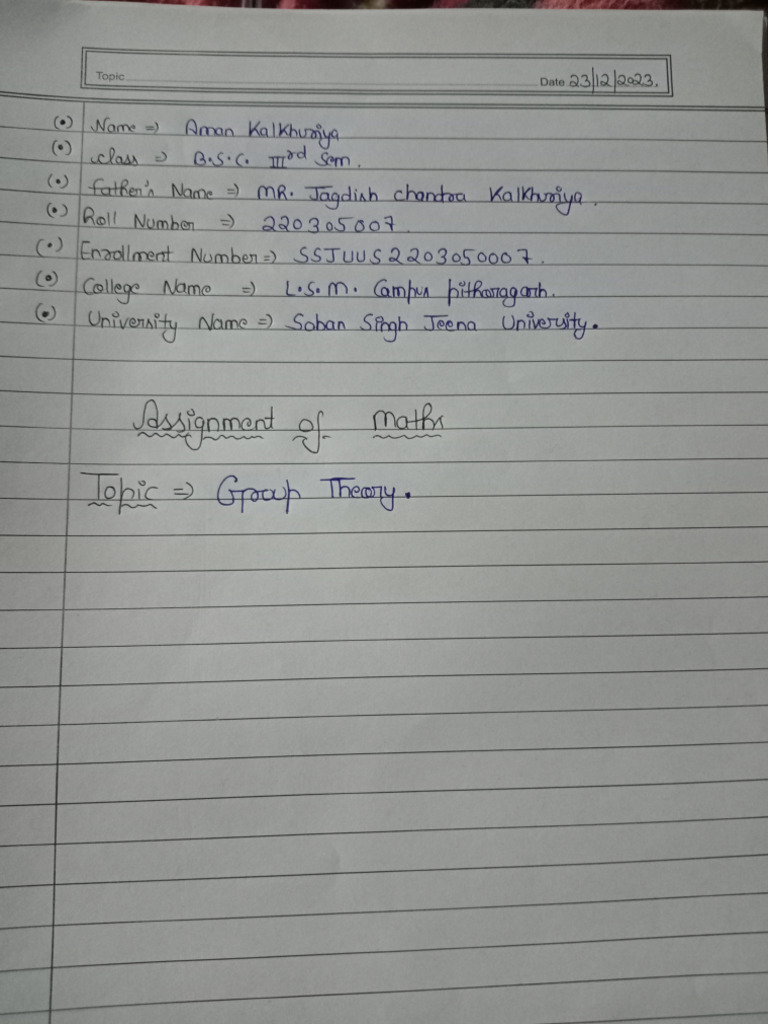 Topic
Date 23/12/2023.
(•) Name => Aman Kalkhuriya
(•) class => B.S.C. IIIrd Sem.
(•) father's Name => MR. Jagdish chandra Kalkhuriya.
(•) Roll Number => 220305007.
(•) Enrollment Number => SSJUUS2203050007.
(•) College Name => L.S.M. Campus pithoragarh.
(•) University Name => Soban Singh Jeena University.
Assignment of maths
Topic => Group Theory.